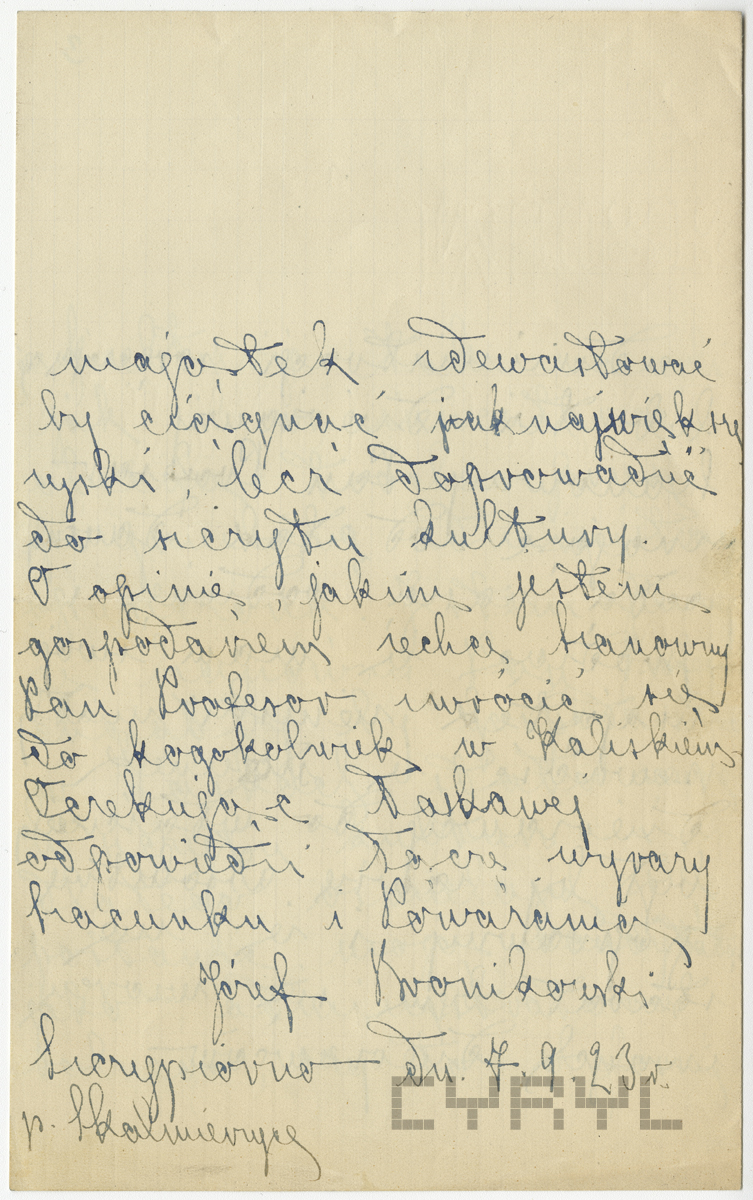 majątek zdewastować
by ciągnąć jak największe
zyski, lecz doprowadzić
do szczytu kultury.
O opinię, jakim jestem
gospodarzem zechce Szanowny
Pan Profesor zwrócić się
do kogokolwiek w Kaliskiém
Oczekując łaskawej
odpowiedzi łączę wyrazy
szacunku i Poważania
Józef Bronikowski
Szczypiorno dn. 7.9.23 r.
p. Skalmierzyce
CYRYL